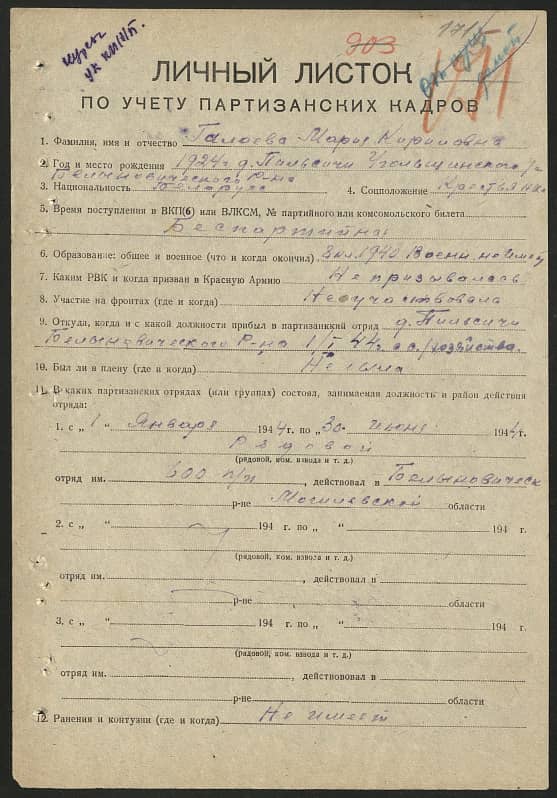 903
ЛИЧНЫЙ ЛИСТОК
ПО УЧЕТУ ПАРТИЗАНСКИХ КАДРОВ
1. Фамилия, имя и отчество Галоева Мария Кириловна
2. Год и место рождения 1924 г д. Пильсичи Угольщинского
Белыновического Р-на
3. Национальность Беларусс 4. Соцположение
5. Время поступления в ВКП(б) или ВЛКСМ, № партийного или комсомольского билета
Беспартийна
6. Образование: общее и военное (что и когда окончил) 8 кл. 1940 Военн. не имеет
7. Каким РВК и когда призван в Красную Армию Не призывалась
8. Участие на фронтах (где и когда) Не участвовала
9. Откуда, когда и с какой должности прибыл в партизанкий отряд д. Пильсичи
Белыновического Р-на 1/I 44 г. с с./хозяйства.
10. Был ли в плену (где и когда) Не была
11. В каких партизанских отрядах (или группах) состоял, занимаемая должность и район действия
отряда:
1. с „ 1 “ Января 1944 г. по „ 30 “ июня 1944 г.
Рядовой
(рядовой, ком. взвода и т. д.)
отряд им. 600 п/п , действовал в Белыновическ
р-не Могилевской области
2. с „ “ 194 г. по „ “ 194 г.
(рядовой, ком. взвода и т. д.)
отряд им. , действовал в
р-не , области
3. с „ “ 194 г. по „ “ 194 г.
(рядовой, ком. взвода и т. д.)
отряд им. , действовал в
р-не области
12. Ранения и контузии (где и когда) Не имеет